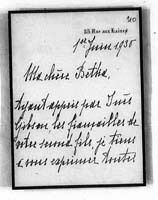 210
25 Rue aux Laines
1er Juin 1935
Ma chère Betha,
Ayant appris par Inès
les fiançailles de
votre second fils, je tiens
à vous exprimer toutes